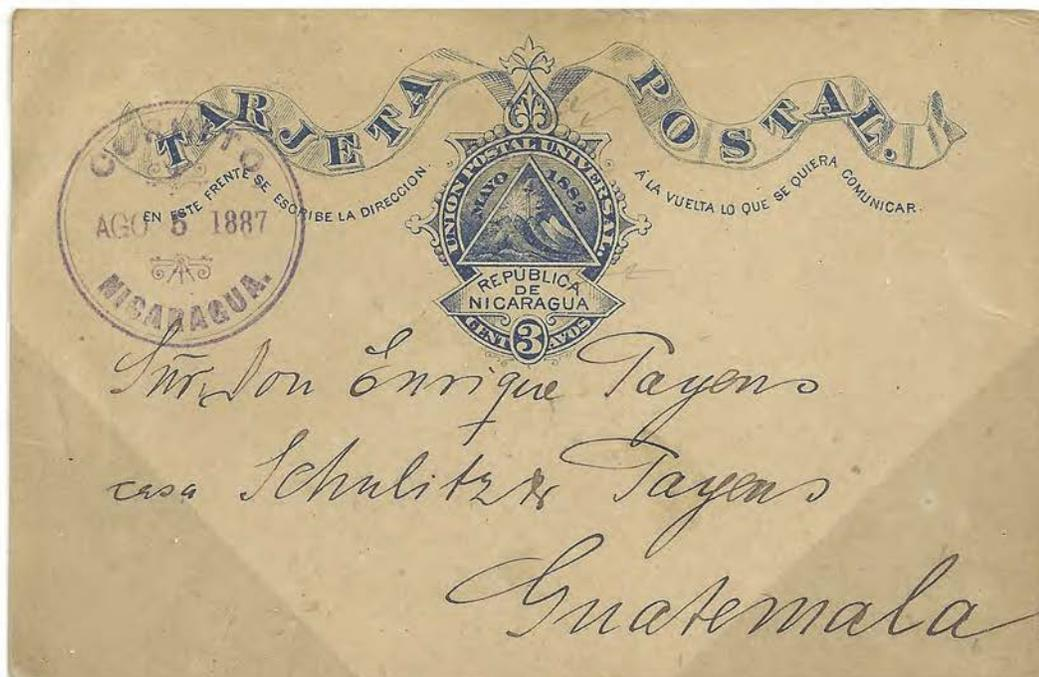 TARJETA POSTAL.
EN ESTE FRENTE SE ESCRIBE LA DIRECCION.
Á LA VUELTA LO QUE SE QUIERA COMUNICAR.
UNION POSTAL UNIVERSAL.
MAYO 1882
REPÚBLICA
DE
NICARAGUA
3
CENT AVOS
CORINTO
AGO 5 1887
NICARAGUA.
Sñr. Don Enrique Tayens
casa Schulitz & Tayens
Guatemala